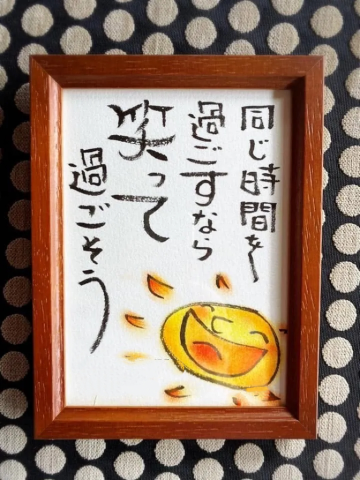 同じ時間を
過ごすなら
笑って
過ごそう